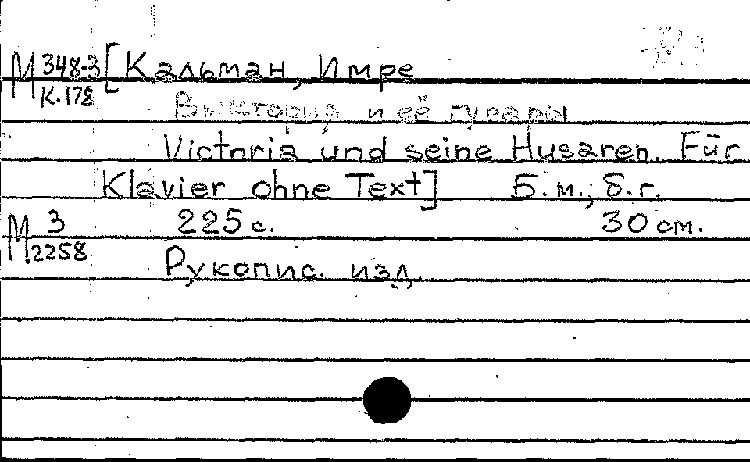 М 348-3 [Кальман, Имре
К.178
Виктория и её гусары
Victoria und seine Husaren. Für
Klavier ohne Text] Б.м.; б.г.
М 3 225 с. 30 см.
2258
Рукопис. изд.